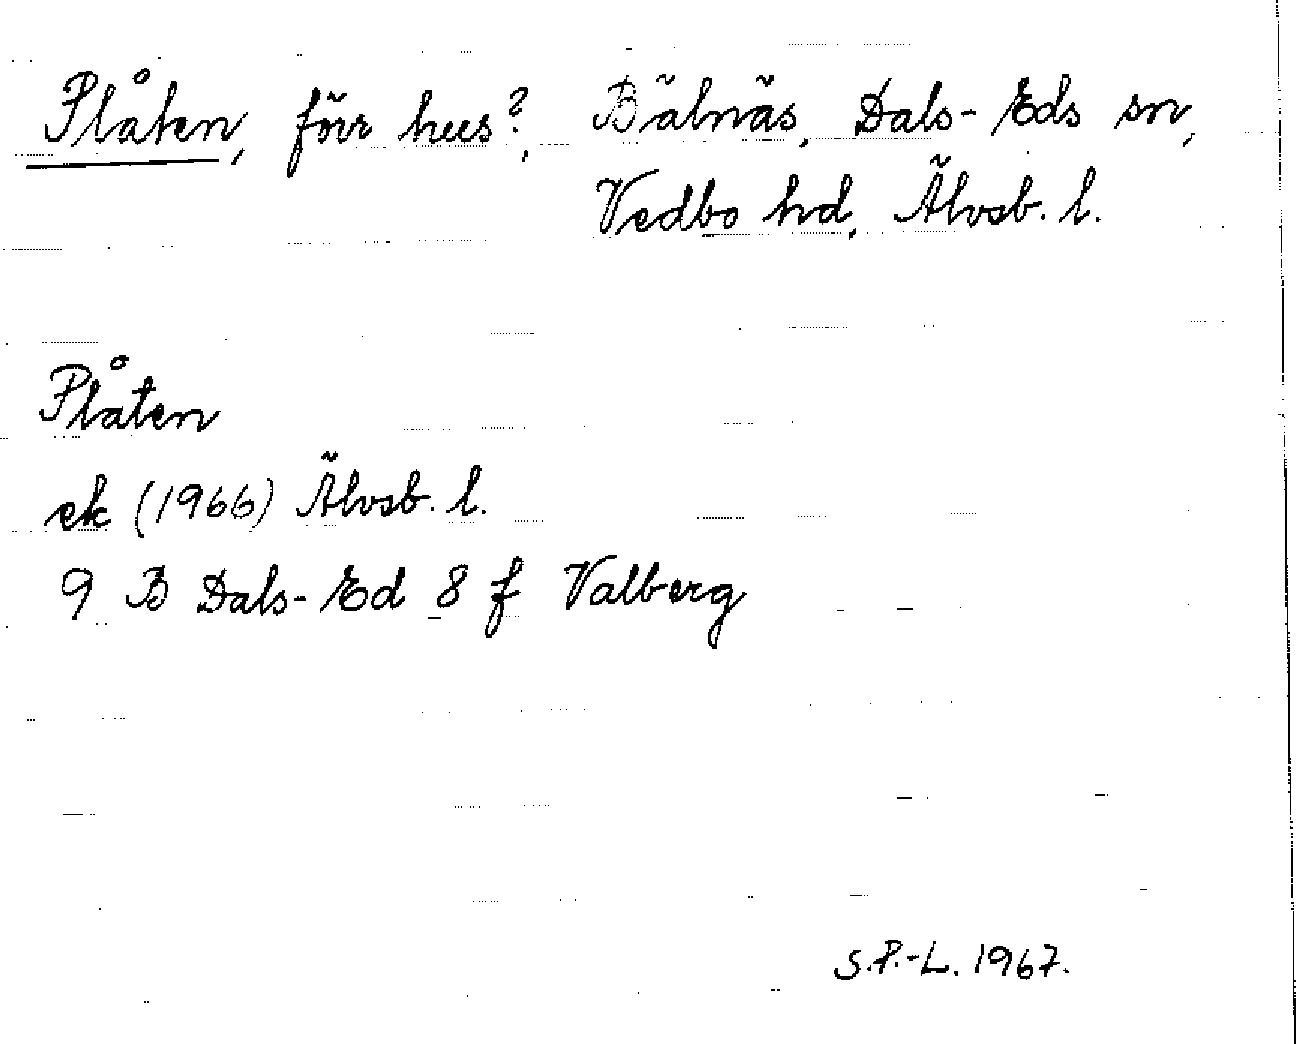 Plåten, förr hus?, Bälnäs, Dals-Eds sn,
Vedbo hd, Älvsb. l.
Plåten
ek (1966) Älvsb. l.
9 B Dals-Ed 8 f Valberg
S.P.-L. 1967.